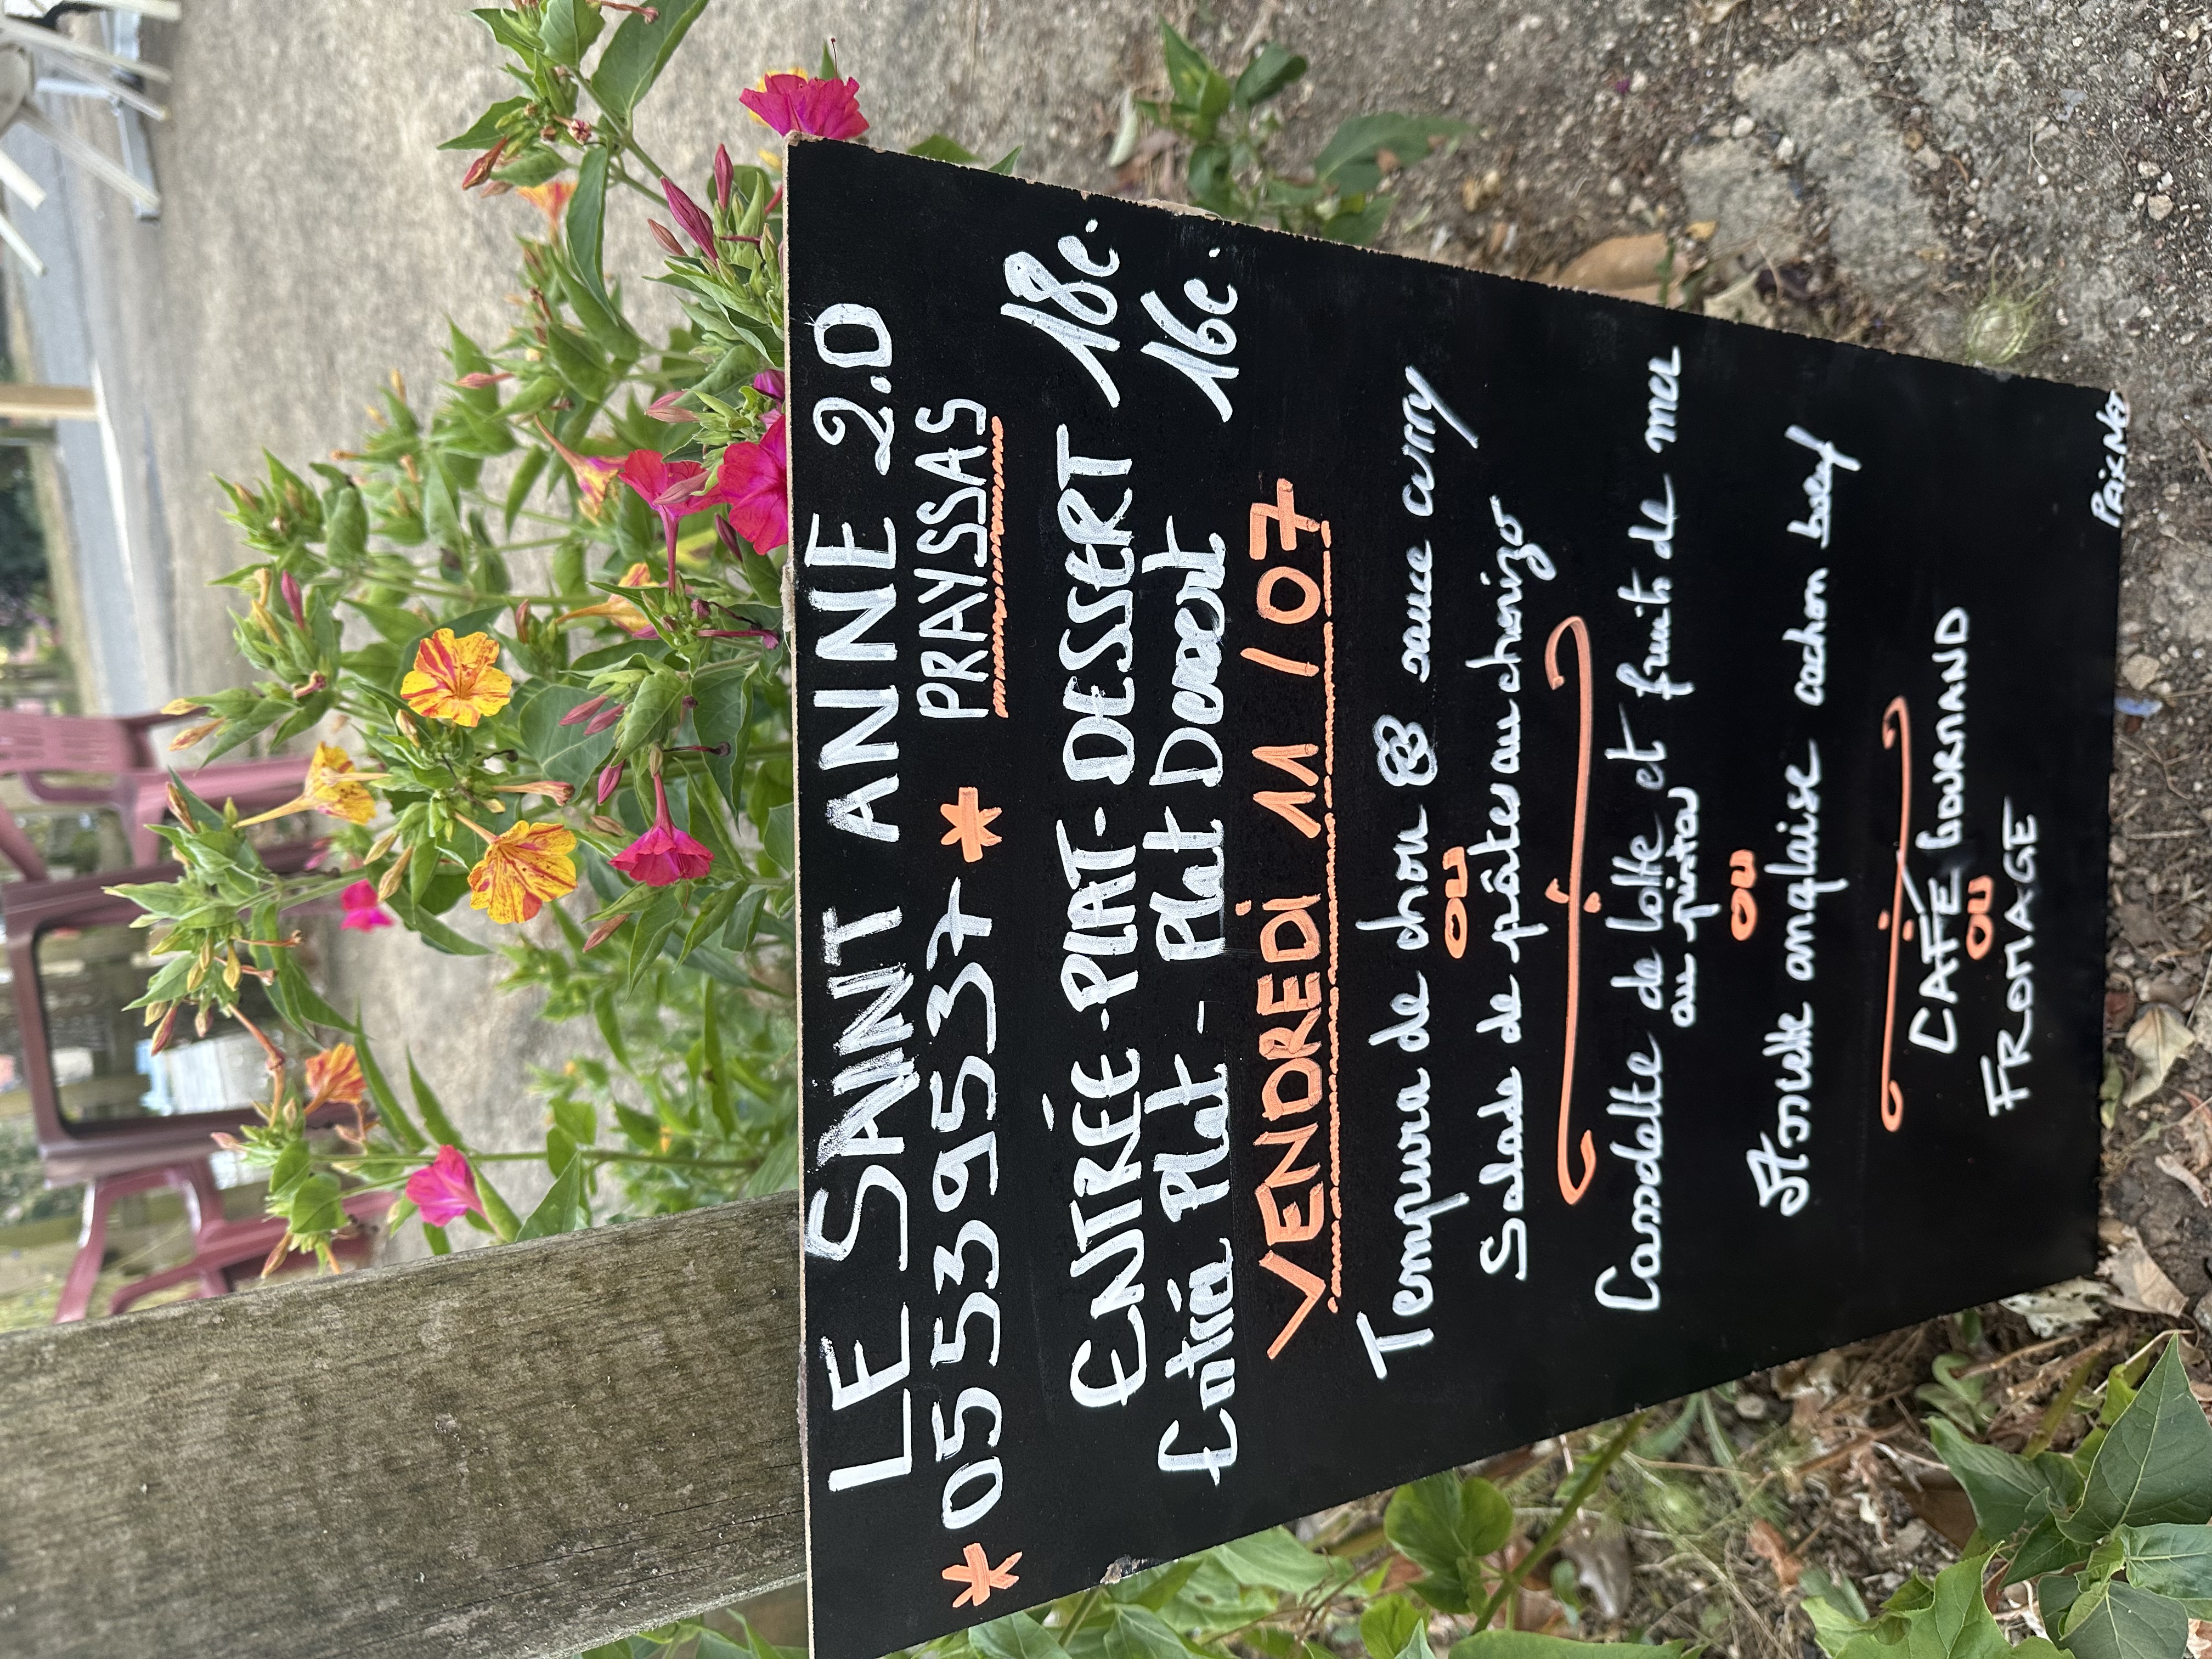 LE SAINT ANNE 2.0
* 0553953537 * PRAYSSAS
ENTRÉE-PLAT-DESSERT 18e.
Entrée Plat - Plat Dessert 16e.
VENDREDI 11/07
Tempura de chou sauce curry
OU
Salade de pâtes au chorizo
Cassolette de lotte et fruits de mer
au pistou
OU
Assiette anglaise cochon bœuf
CAFÉ GOURMAND
OU
FROMAGE